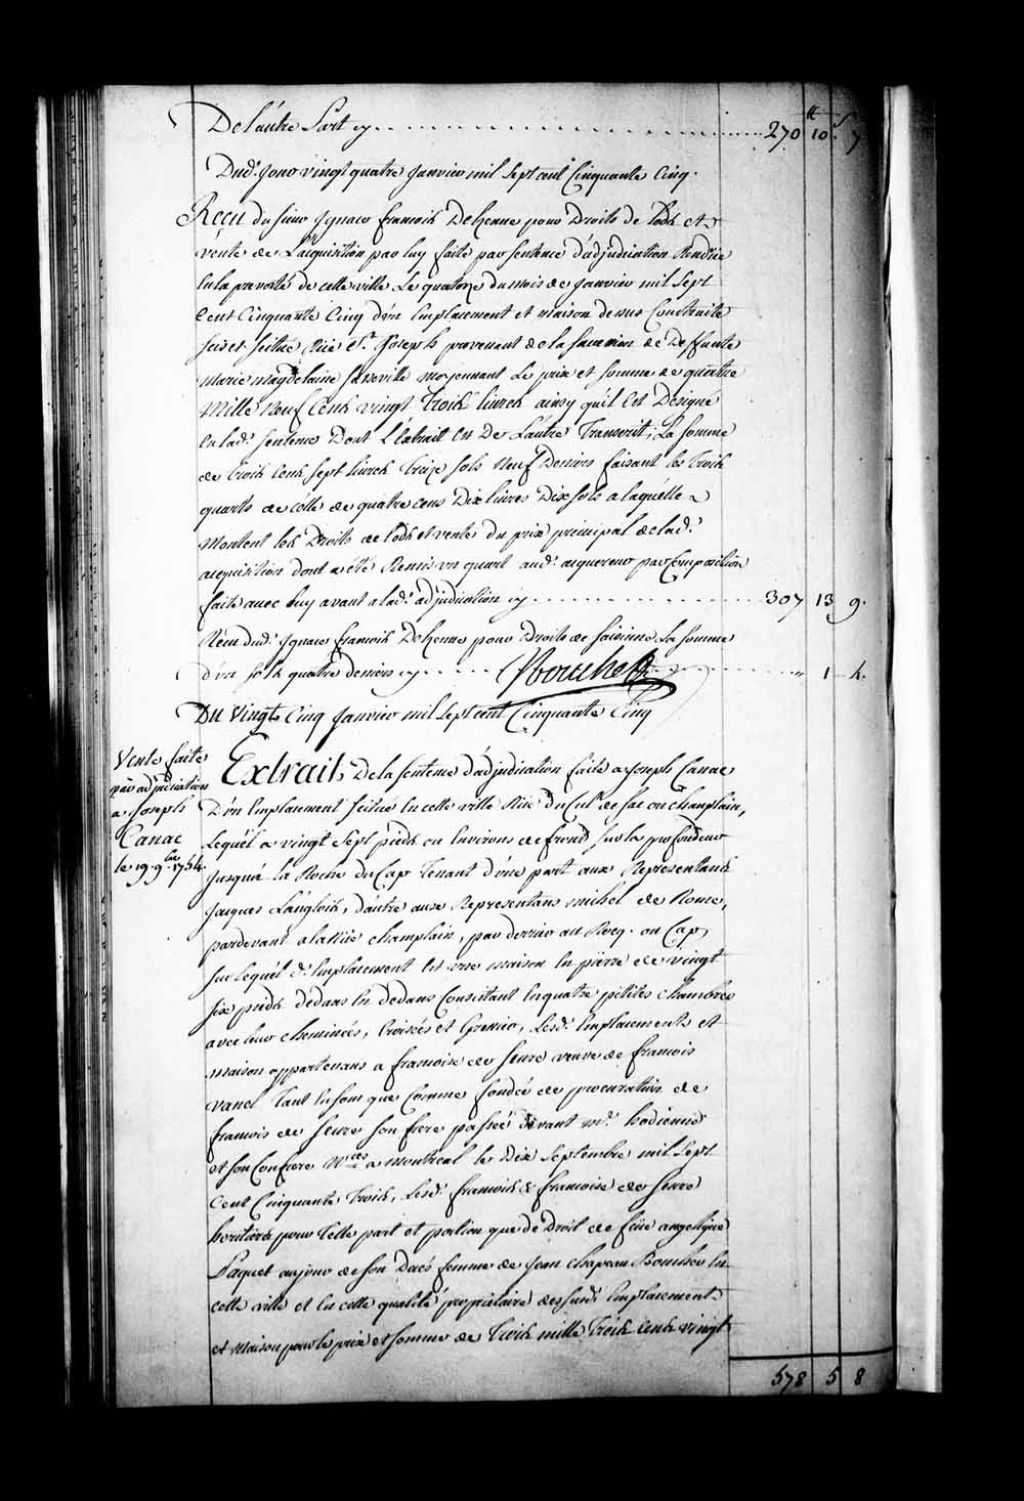 De l'autre Part cy ........ 270 ₶ 10 s 7
Dud.t Jour vingt quatre Janvier mil sept cent Cinquante Cinq.
Reçu du sieur Ignace francois Delzenne pour Droits de lods et
vente de l'acquisition par luy faite par sentence d'adjudication Rendüe
en la prevosté de cette ville Le quatorze du mois de Janvier mil sept
Cent Cinquante Cinq d'un Emplacement et maison dessus Construite
Size et scituée Rüe St. Joseph provenant de la succession de Deffunte
Marie magdelaine moyennant Le prix et somme de quatre
Mille Neuf Cents vingt trois livres ainsy qu'il est Designé
en lad.e sentence Dont l'Extrait est De l'autre Transcrit, La somme
de trois Cents sept livres treize sols Neuf Deniers faisant les trois
quarts de celle de quatre cens Dix livres Dix sols a laquelle
Montent les Droits de lods et ventes du prix principal de lad.e
acquisition dont a été Remis un quart aud.t acquereur par Composition
faite avec luy avant a lad.e adjudication cy ........ 307 13 9.
Reçu dud.t Ignace francois Delzenne pour Droits de saisinne La somme
d'un sols quatre deniers cy ........ " 1 4.
Du Vingt Cinq Janvier mil sept cent Cinquante Cinq
Vente faite
par adjudication
a Joseph
Canac
le 19. 9.bre 1754.
Extrait De la sentence d'adjudication faite a Joseph Canac
D'un Emplacement scitué en cette ville Rüe du Cul de sac ou champlain,
Lequel a vingt sept pieds ou Environs de front sur la profondeur
Jusqu'a la Roche du Cap Tenant d'une part aux Representans
Jacques Langlois, d'autre aux Representans michel de Rome,
pardevant a la Rüe champlain, par derriere au Rocq. ou Cap,
sur lequel d. Emplacement est une maison en pierre de vingt
six pieds dedans en dedans Consistant en quatre petites chambres
avec leur cheminées, Croisées et Grenier, Lesd.t Emplacements et
maison appartenans a francoise de veuve de francois
vanel Tant en son que Comme fondée de procuration de
francois de son frere passée devant m.e hodienne
et son Confrere N.res a montreal le Dix Septembre mil sept
Cent Cinquante trois, Lesd. francois & francoise de
heritiers pour telle part et portion que de Droit de feüe angelique
Paquet au jour de son Decés femme de Jean chapeau Boucher en
cette ville et en cette qualité proprietaire des susd. Emplacement
et Maison pour le prix et somme de trois mille trois Cents vingt
578 5 8